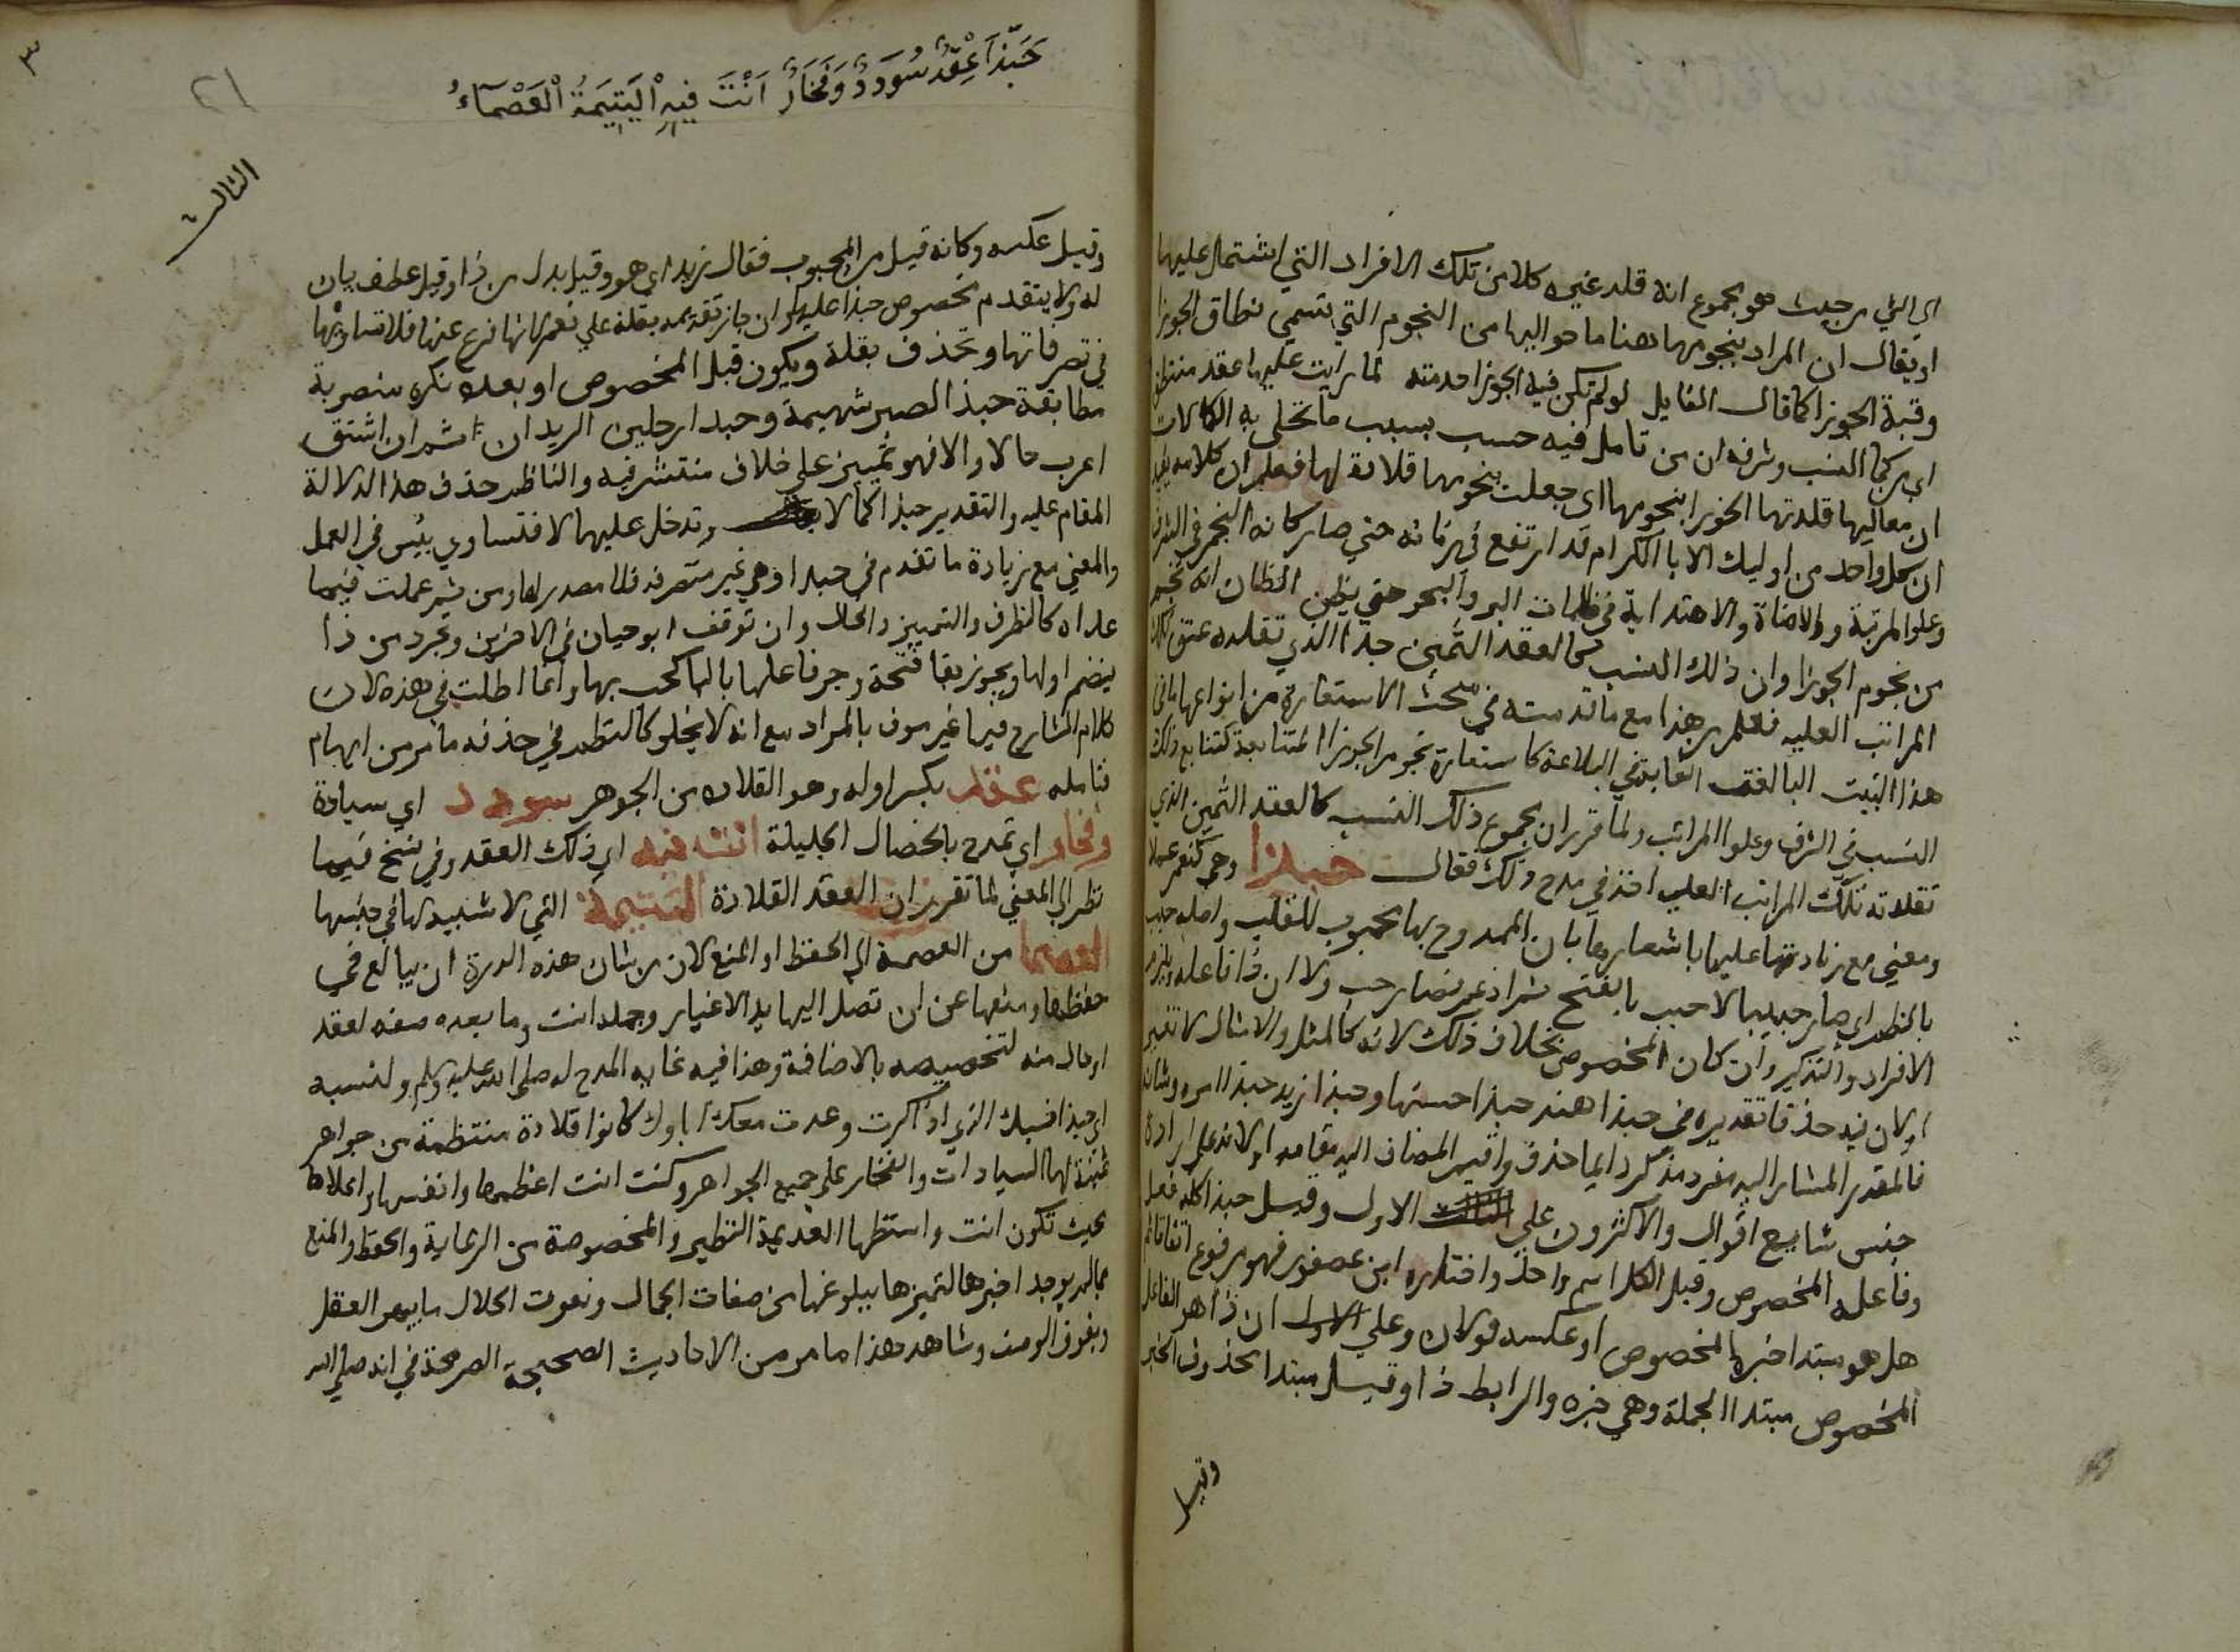 اي الشي من حيث هو مجموع انه قلد غيره كلا من تلك الافراد التي اشتمل عليها
او يقال ان المراد بنجومها هنا ما حواليها من النجوم التي تسمي نطاق الجوزا
وقبة الجوزا كما قال القايل لو لم تكن فيه الجوزا خدمته لما رايت عليها عقد منتطق
اي تركما النسب وشرفه ان من تامل فيه حسب بسبب ما تحلي به الكمالات
ان معاليها قلدتها الجوزا بنجومها اي جعلت نجومها قلادة لها فعلم ان كلامه
ان كل واحد من اوليك الابا الكرام قد ارتفع في زمانه حتي صار كانه النجم في الشرف
وعلو المرتبة والاضاة والاهتدا به في ظلمات البر والبحر حتي يظن الظان انه نجم
من نجوم الجوزا وان ذلك النسب كالعقد الثمين جدا الذي تقلده عنق
المراتب العليه فعلم من هذا مع ما قدمته في مبحث الاستعارة من انواعها ما في
هذا البيت البالغة الغاية في البلاغة كاستعارة نجوم الجوزا المتتابعة كتتابع ذلك
النسب في الشرف وعلوا المراتب ولما قرر ان مجموع ذلك النسب كالعقد الثمين الذي
تقلدته تلك المراتب العليه اخذ في مدح ذلك فقال حبذا وهي كنعم عملا
ومعني مع زيادتها عليها باشعارها بان الممدوح بها محبوب للقلب واصله حبب
بالضم اي صار حبيبا لا حبب بالفتح ثم ادغم فصار حب ولا ان ذا فاعله ويلزم
الافراد والتذكير وان كان المخصوص بخلاف ذلك لانه كالمثل والامثال لا تغير
او لان فيه حذفا تقديره في حبذا هند حبذا حسنها وحبذا زيد حبذا امره وشانه
فالمقدر المشار اليه مفرد مذكر دايما حذف واقيم المضاف اليه مقامه او لانه علي ارادة
جنس شايع اقوال والاكثرون علي الاول وقيل حبذا كله فعل
وفاعله المخصوص وقيل الكل اسم واحد واختاره ابن عصفور فهو مرفوع اتفاقا ثم
هل هو مبتدا خبره المخصوص او عكسه قولان وعلي الاول ان ذا هو الفاعل
المخصوص مبتدا الجملة وهي خبره والرابط ذا وقيل مبتدا محذوف الخبر
وقيل
٣
٢١
حَبَّذَا عِقْدُ سُودَدٍ وَفَخَارٍ اَنْتَ فِيهِ الْيَتِيمَةُ الْعَصْمَاءُ
الثالث
وقيل عكسه وكانه قيل من المحبوب فقال زيد اي هو وقيل بدل من ذا وقيل عطف بيان
له ولا يتقدم مخصوص حبذا عليها وان جاز تقديمه بقلة علي نعم لانها فرع عنها فلا تساويها
في تصرفاتها وتحذف بقلة ويكون قبل المخصوص او بعده نكره منصوبة
مطابقة حبذا الصبر شهيمة وحبدا رجلين الزيدان ثم ان اشتق
اعرب حالا والا فهو تمييز علي خلاف منتشر فيه والناظم حذف هذا لدلالة
المقام عليه والتقدير حبذا كمالا وتدخل عليها لا فتساوي بئس في العمل
والمعني مع زيادة ما تقدم في حبدا وهي غير متصرفه فلا مصدر لها ومن ثم عملت فيما
عداه كالظرف والتمييز والحال وان توقف ابو حيان في الاخيرين وتجرد من ذا
فيضم اولها ويجوز بقا فتحة وجر فاعلها بالبا كحب بها وانما اطلت في هذه لان
كلام الشارح فيها غير موف بالمراد مع انه لا يخلو كالنظم في حذفه ما مر من ايهام
فتامله عقد بكسر اوله وهو القلاده من الجوهر سودد اي سيادة
وفخار اي تمدح بالخصال الجليلة انت فيه اي ذلك العقد وفي نسخ فيها
نظر الي المعني لما تقرر ان العقد القلادة اليتيمة التي لا شبيه لها في جنسها
العصما من العصمة اي الحفظ او المنع لان من شان هذه الدرة ان يبالغ في
حفظها ومنعها عن ان تصل اليها يد الاغيار وجملة انت وما بعده صفه لعقد
او حال منه لتخصيصه بالاضافة وهذا فيه غايه المدح له صلي الله عليه وسلم ولنسبه
اي حبذا نسبك الذي اذا ذكرت وعدت معك اباوك كانوا قلادة منتظمة من جواهر
ثمينة لها السيادات والفخار علي جميع الجواهر وكنت انت اعظمها وانفسها واعلاها
بحيث تكون انت واسطها العديمة النظير والمخصوصة من الرعاية والحفظ والمنع
بما لم يوجد لغيرها لتميزها ببلوغها من صفات الجمال ونعوت الجلال ما يبهر العقل
ويفوق الوصف وشاهد هذا ما مر من الاحاديث الصحيحة المصرحة في انه صلي الله